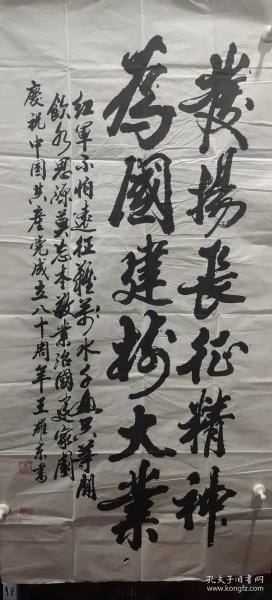 發揚長征精神
為國建樹大業
紅軍不怕遠征難萬水千山只等閒
飲水思源莫忘本敬業治國建家園
慶祝中国共產党成立八十周年王耀东書
孔夫子旧书网